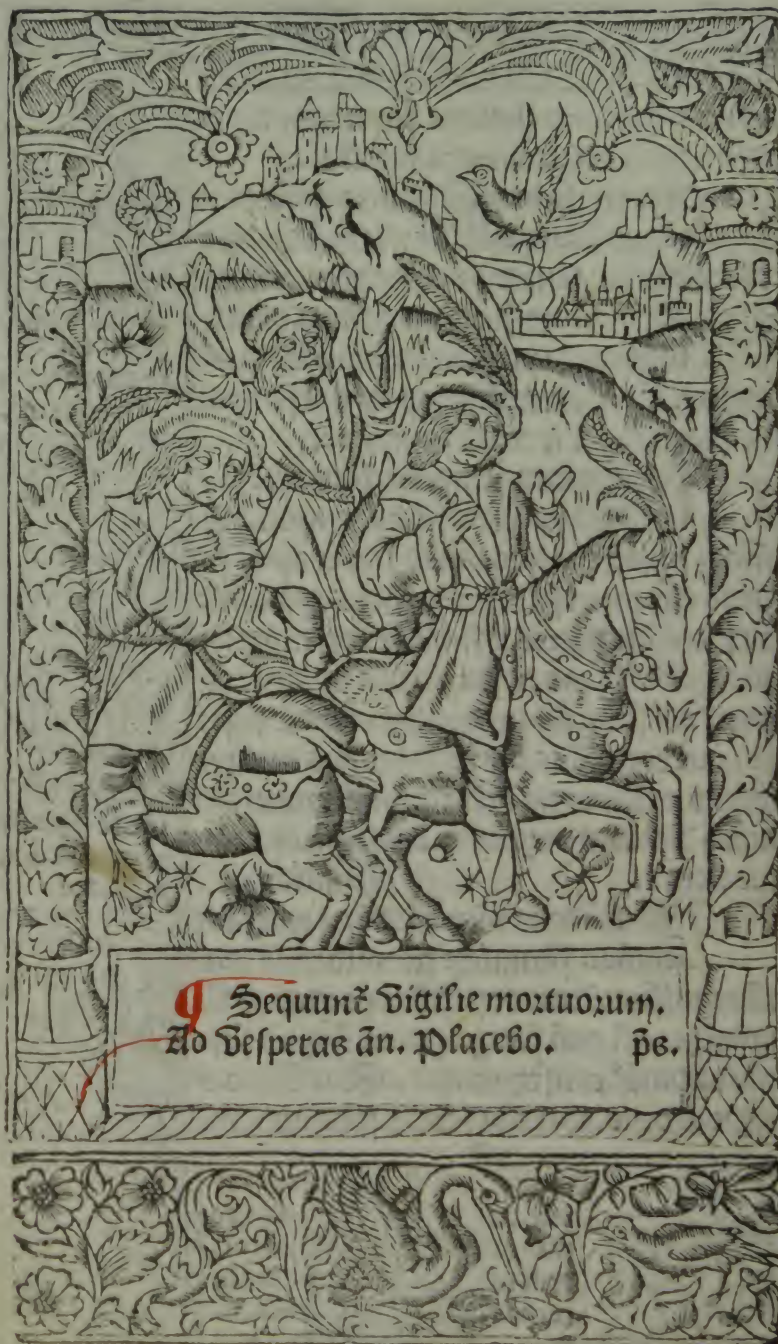 ¶ Sequunt̃ Vigilie mortuorum.
Ad Vesperas añ. Placebo. p̃s.